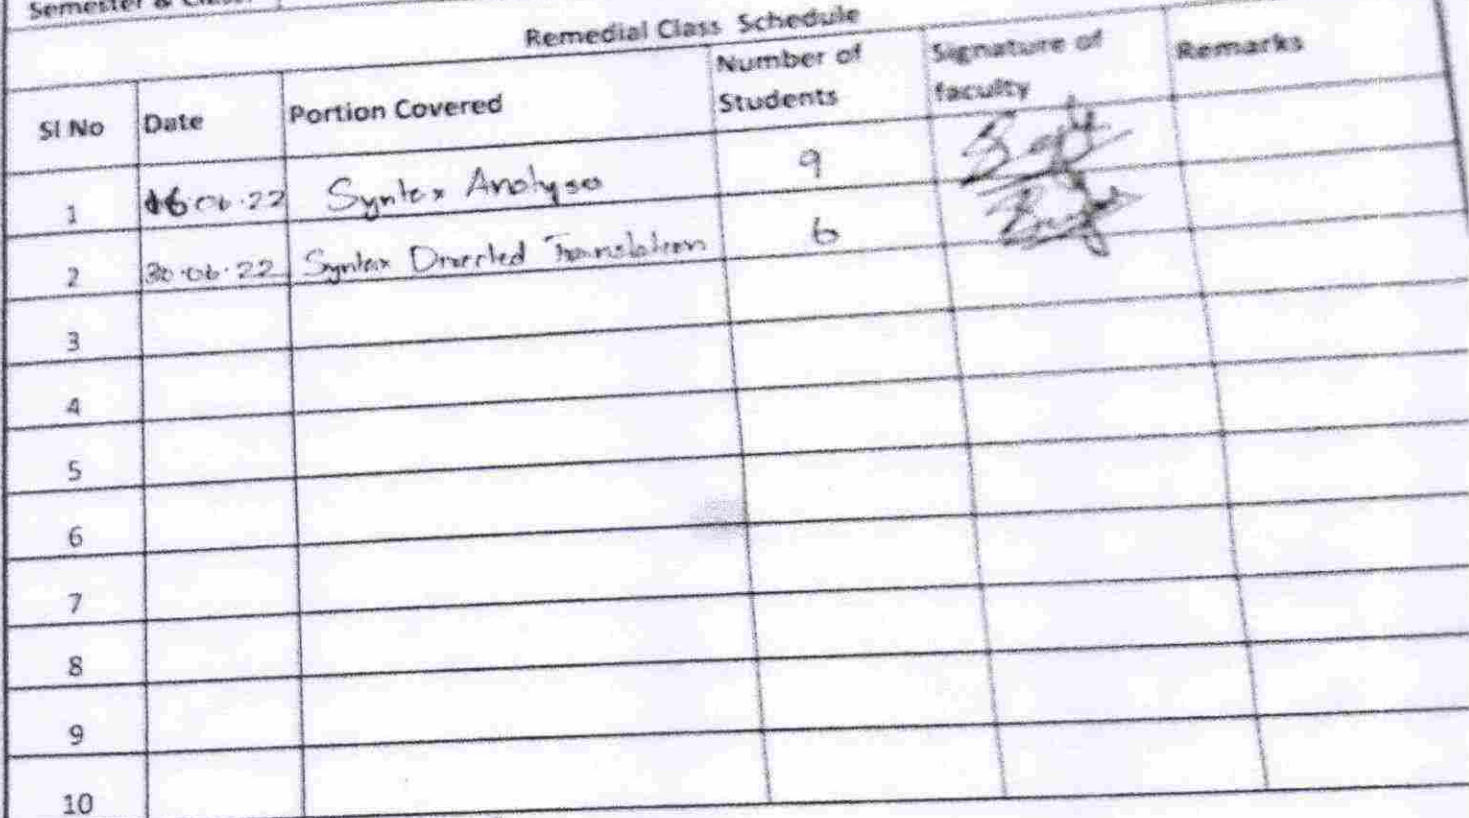 Semester &
Remedial Class Schedule
Sl No Date Portion Covered Number of Students Signature of faculty Remarks
1 16.06.22 Syntax Analyser 9
2 30.06.22 Syntax Directed Translation 6
3
4
5
6
7
8
9
10